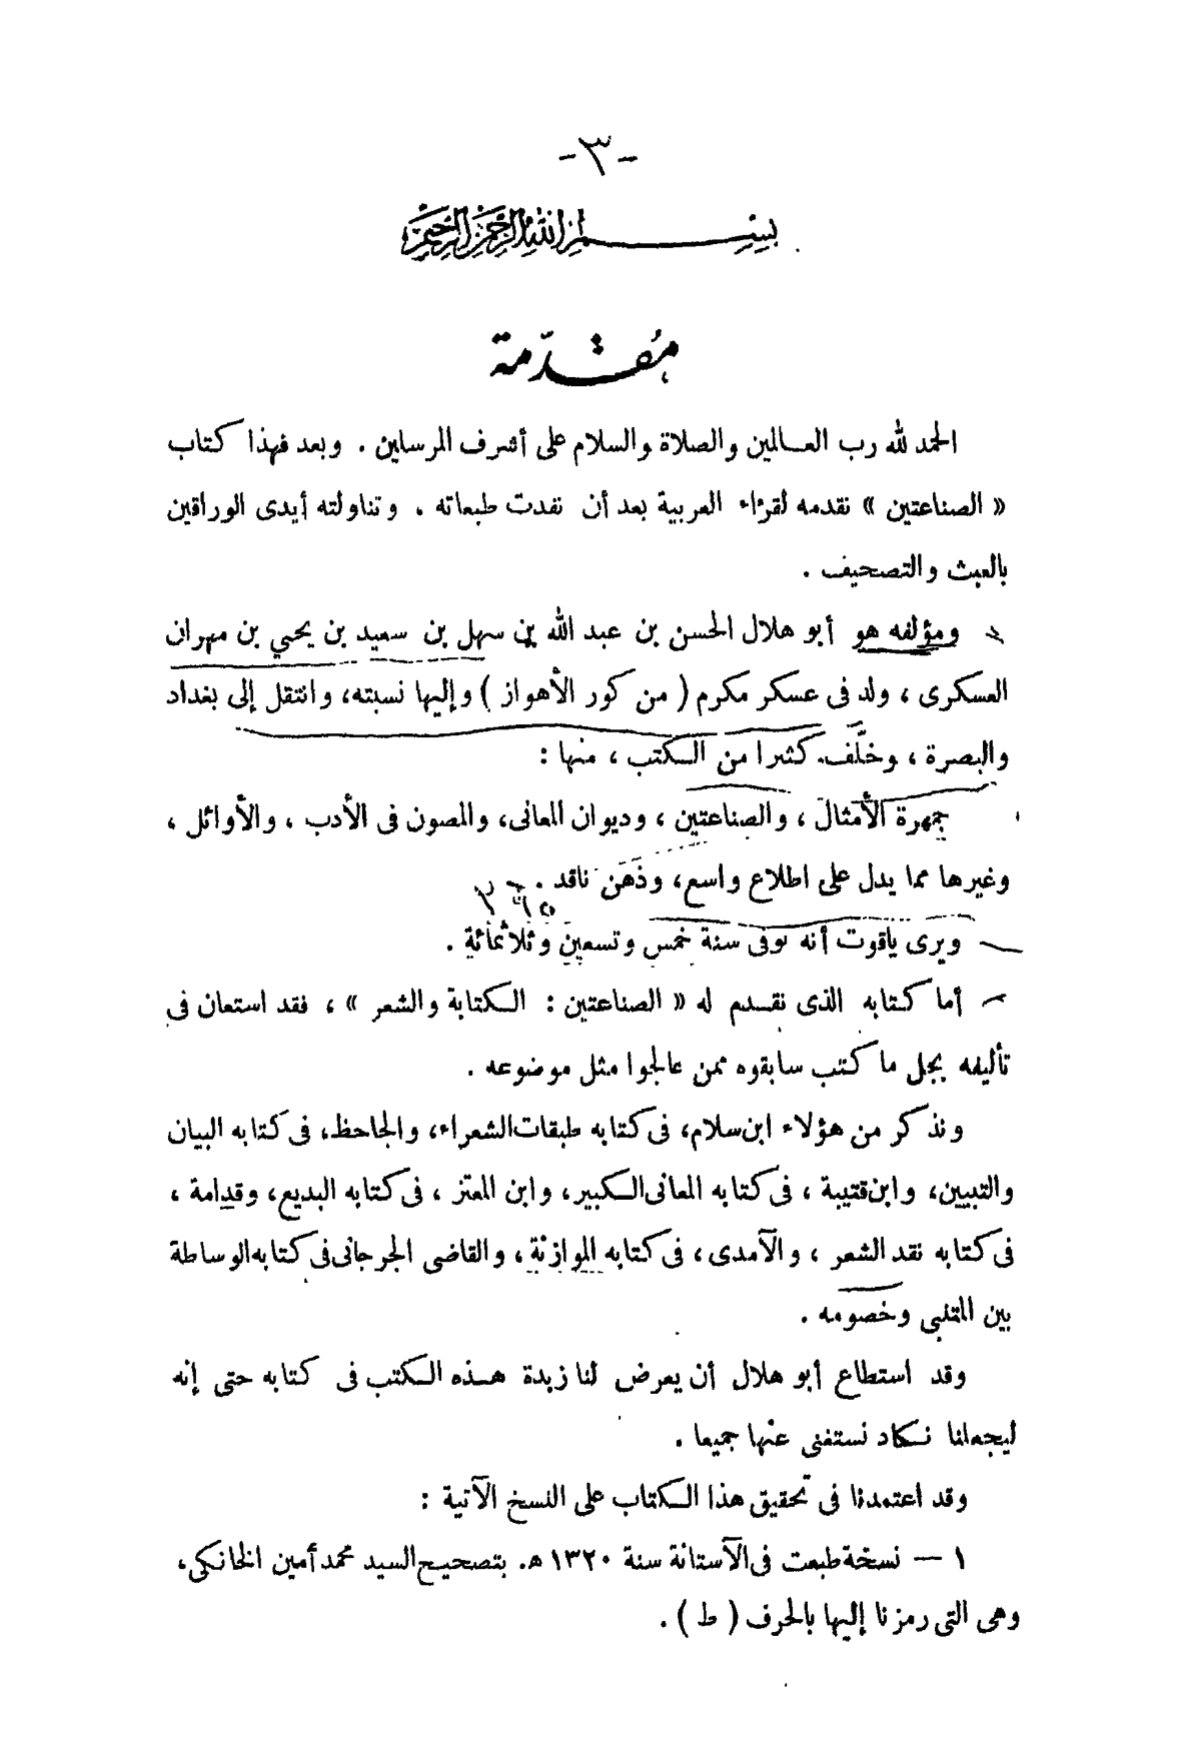 -٣-
بسم الله الرحمن الرحيم
مُقدّمة
الحمد لله رب العالمين والصلاة والسلام على أشرف المرسلين . وبعد فهذا كتاب
« الصناعتين » نقدمه لقرّاء العربية بعد أن نفدت طبعاته ، وتناولته أيدى الوراقين
بالعبث والتصحيف .
ومؤلفه هو أبو هلال الحسن بن عبد الله بن سهل بن سعيد بن يحيي بن مهران
العسكرى ، ولد فى عسكر مكرم ( من كور الأهواز ) وإليها نسبته، وانتقل إلى بغداد
والبصرة ، وخلَّف كثيرا من الكتب ، منها :
جمهرة الأمثال ، والصناعتين ، وديوان المعانى، والمصون فى الأدب ، والأوائل ،
وغيرها مما يدل على اطلاع واسع، وذهن ناقد .
٣٩٥
ويرى ياقوت أنه توفى سنة خمس وتسعين وثلاثمائة .
أما كتابه الذى نقدم له « الصناعتين : الكتابة والشعر » ، فقد استعان فى
تأليفه بجل ما كتب سابقوه ممن عالجوا مثل موضوعه .
ونذكر من هؤلاء ابن سلام، فى كتابه طبقات الشعراء، والجاحظ، فى كتابه البيان
والتبيين، وابن قتيبة ، فى كتابه المعانى الكبير، وابن المعتز ، فى كتابه البديع، وقدامة ،
فى كتابه نقد الشعر ، والآمدى ، فى كتابه الموازنة ، والقاضى الجرجانى فى كتابه الوساطة
بين المتنبى وخصومه .
وقد استطاع أبو هلال أن يعرض لنا زبدة هذه الكتب فى كتابه حتى إنه
ليجعلنا نكاد نستغنى عنها جميعا .
وقد اعتمدنا فى تحقيق هذا الكتاب على النسخ الآتية :
١ — نسخة طبعت فى الآستانة سنة ١٣٢٠ هـ. بتصحيح السيد محمد أمين الخانكى،
وهى التى رمزنا إليها بالحرف ( ط ) .